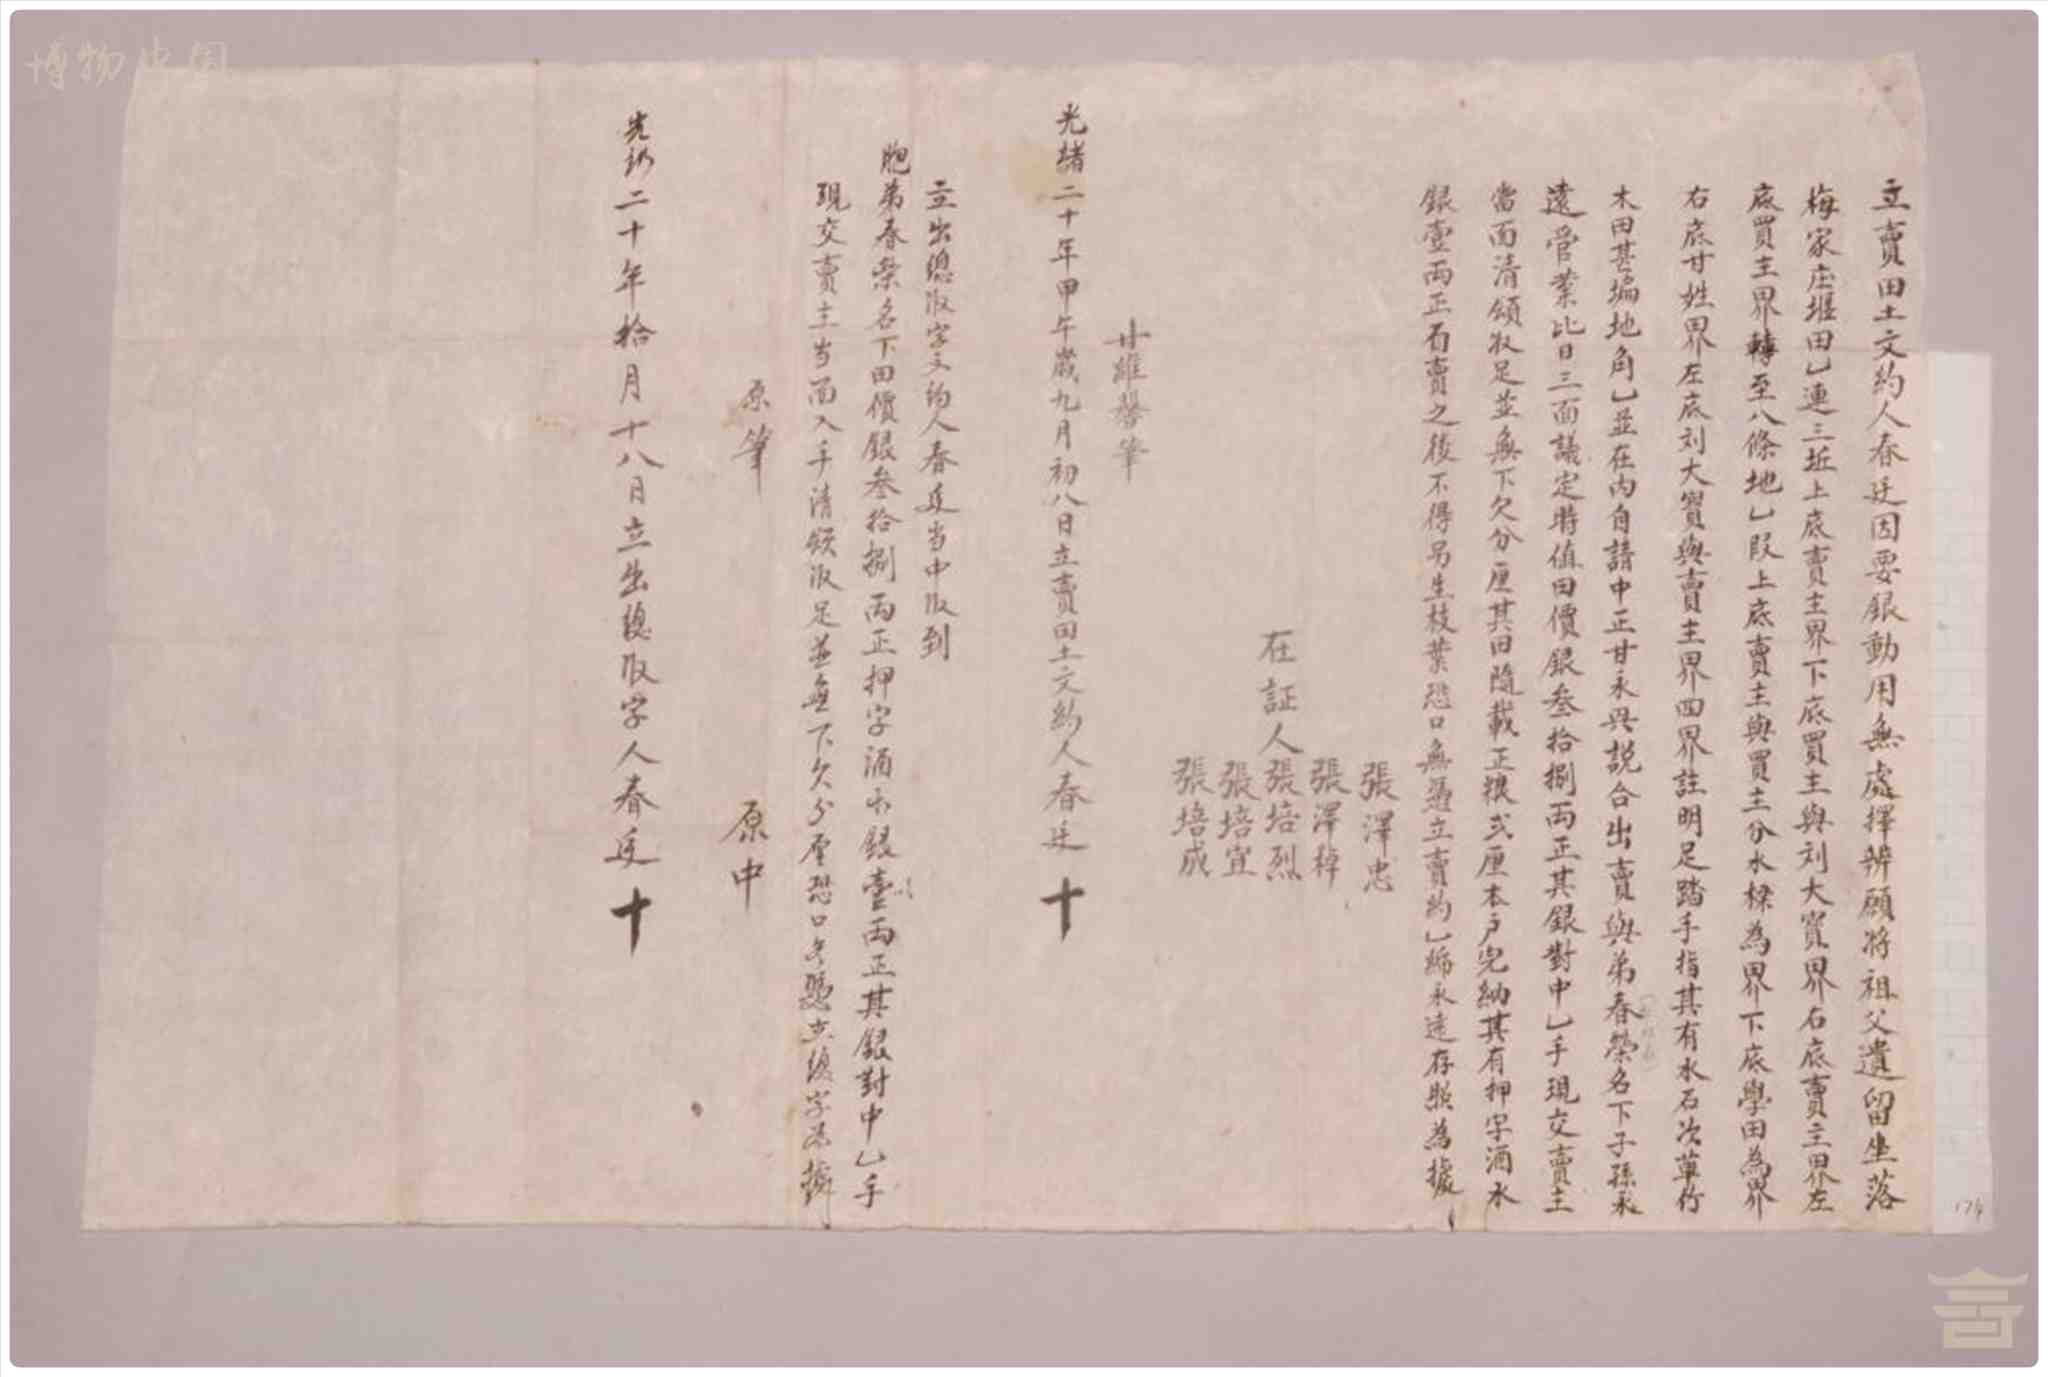 立賣田土文約人春廷因要銀動用無處擇辨願將祖父遺留坐落
梅家庄堰田乙連三坵上底賣主界下底買主與刘大寳界右底賣主界左
底買主界轉至八條地乙段上底賣主與買主分水樑為界下底學田為界
右底甘姓界左底刘大寳與賣主界四界註明足踏手指其有水石次草竹
木田甚塥地角乙並在內自請中正甘永興説合出賣與弟春榮名下子孫永
遠管業比日三面議定時值田價銀叁拾捌兩正其銀對中乙手現交賣主
當面清領收足並無下欠分厘其田隨載正粮弍厘本户完納其有押字酒水
銀壹兩正石賣之後不得另生枝葉恐口無憑立賣約乙紙永遠存照為據
張澤忠
張澤
在証人張培烈
張培宜
張培成
甘維馨筆
光緒二十年甲午歲九月初八日立賣田土文約人春廷十
立出總收字文約人春廷当中收到
胞弟春榮名下田價銀叁拾捌兩正押字酒水銀壹兩正其銀對中乙手
現交賣主当面入手清領收足並無下欠分厘恐口無憑立總字為據
原筆 原中
光緒二十年拾月十八日立出總收字人春廷十
174
博物中国